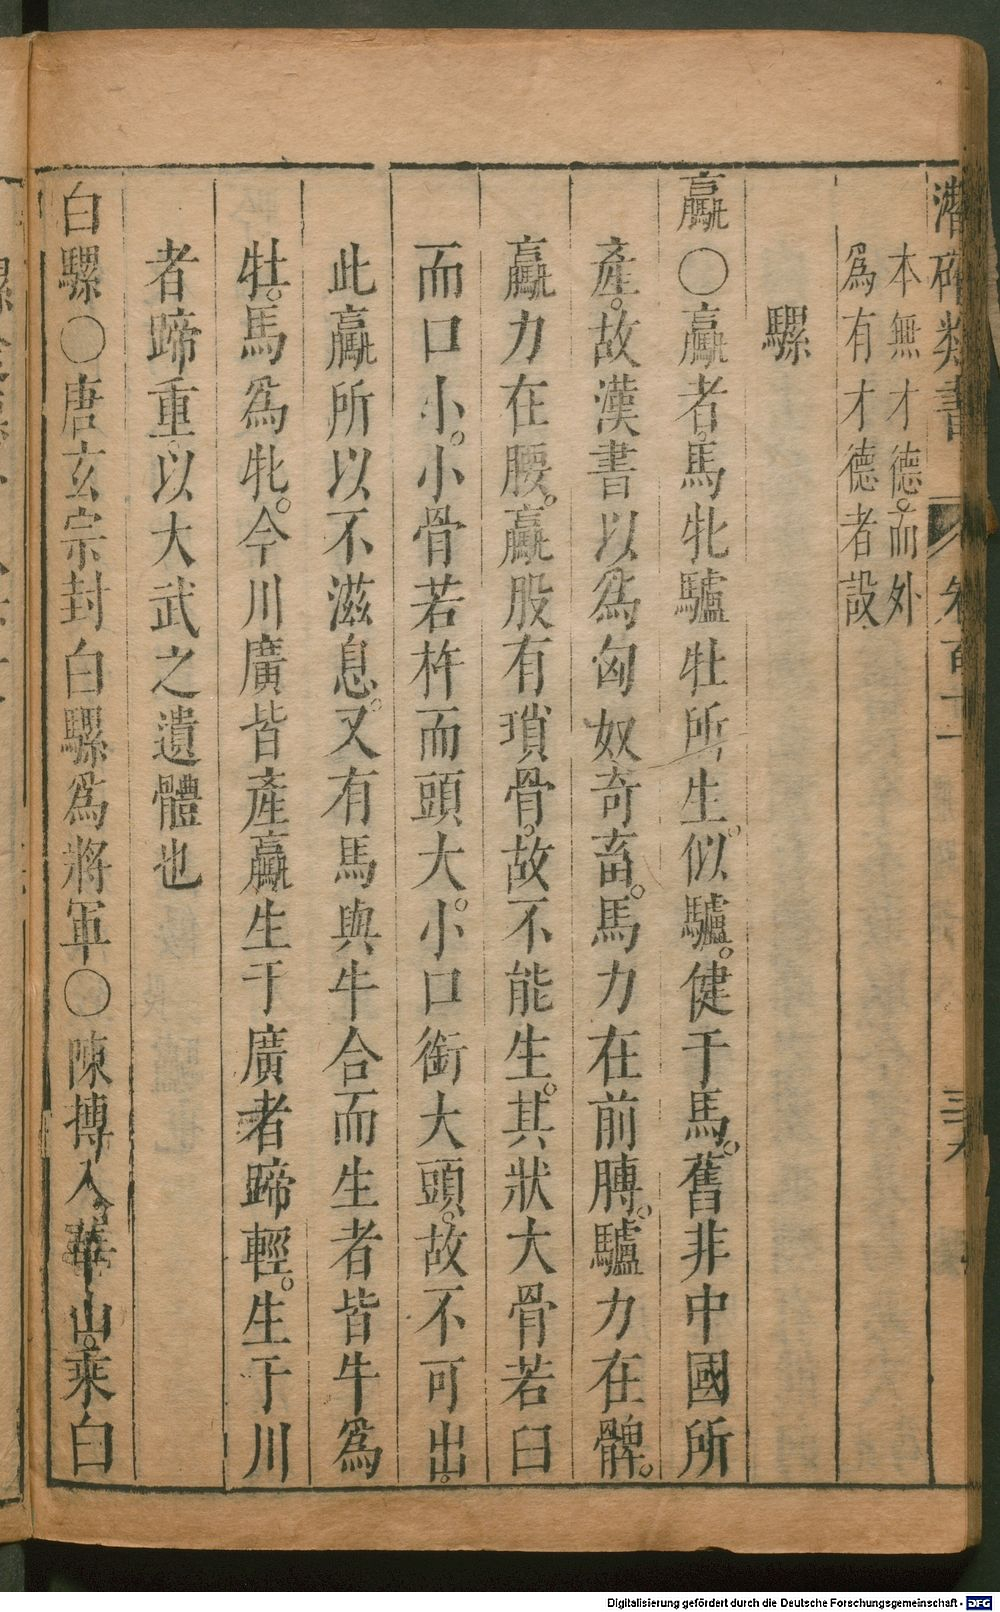 潛確類書 卷百十一 三十六
本無才德。而外
爲有才德者設
騾
驘〇驘者。馬牝驢牡所生。似驢。健于馬。舊非中國所
產。故漢書以爲匈奴奇畜。馬力在前膊。驢力在髀。
驘力在腰。驘股有瑣骨。故不能生。其狀大骨若臼
而口小。小骨若杵而頭大。小口銜大頭。故不可出。
此驘所以不滋息。又有馬與牛合而生者皆牛爲
牡。馬爲牝。今川廣皆產驘生于廣者蹄輕。生于川
者蹄重。以大武之遺體也
白騾〇唐玄宗封白騾爲將軍〇陳摶入華山。乘白
Digitalisierung gefördert durch die Deutsche Forschungsgemeinschaft - DFG